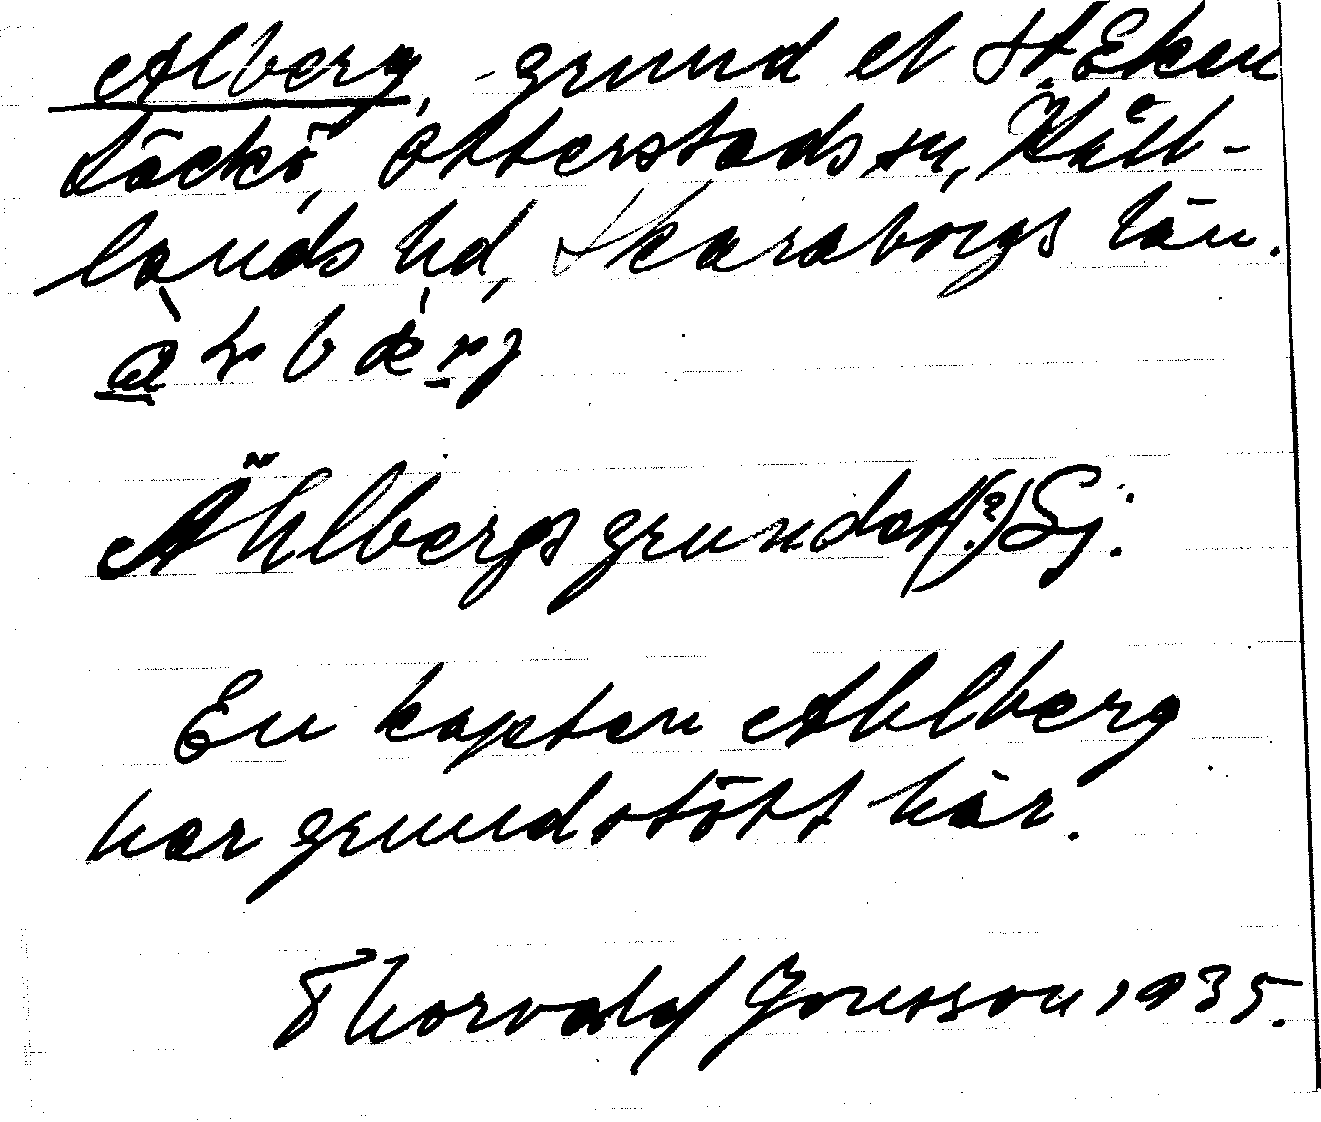 Alberg, - grund et St. Eken
Läckö, Otterstads sn, Kåll-
lands hd, Skaraborgs län.
Ahlbergsgrundet(?) Sj.
En kapten Ahlberg
har grundstött här.
Thorvald Jonsson 1935.